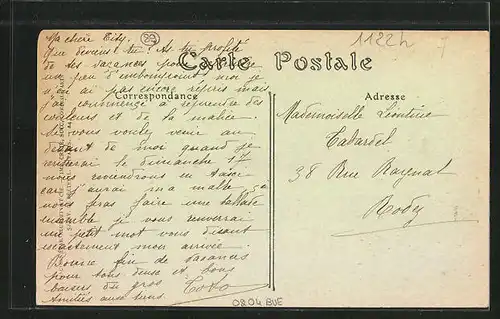 89
1122h
Ma chère Titz.
Que deviens tu ? As tu profité
de tes vacances pour
un peu d'embonpoint, moi je
n'en ai pas encore repris mais
j'ai commencé à reprendre des
couleurs et de la
Si vous voulez venir au
devant de moi quand je
rentrerai le dimanche 17
nous reviendrons en
car j'aurai ma malle, ça
nous fera faire une ballade
ensemble je vous renverrai
un petit mot vous disant
exactement mon arrivée.
Bonne fin de vacances
pour tous deux et bons
baisers du gros Toto
Amitiés aux tiens
Carte Postale
Correspondance
Adresse
Mademoiselle Léontine
Tabardel
38 Rue Raynal
Rodez
0804 BUE